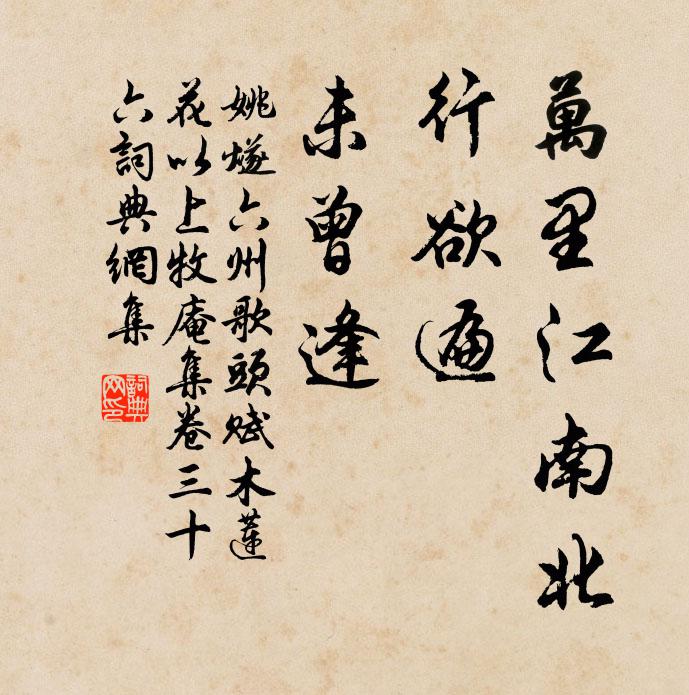 萬里江南北
行欲遍
未曾逢
姚燧六州歌頭賦木蓮
花以上牧庵集卷三十
六詞典網集
詞典
网印